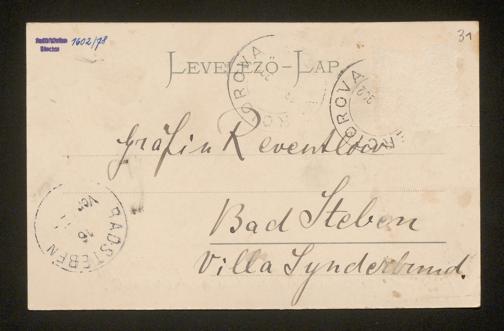 1602/78
31
LEVELEZŐ-LAP.
OROVA
ORSOVA
Gräfin Reventlow
Bad Steben
Villa Synderbund.
BADSTEBEN
16